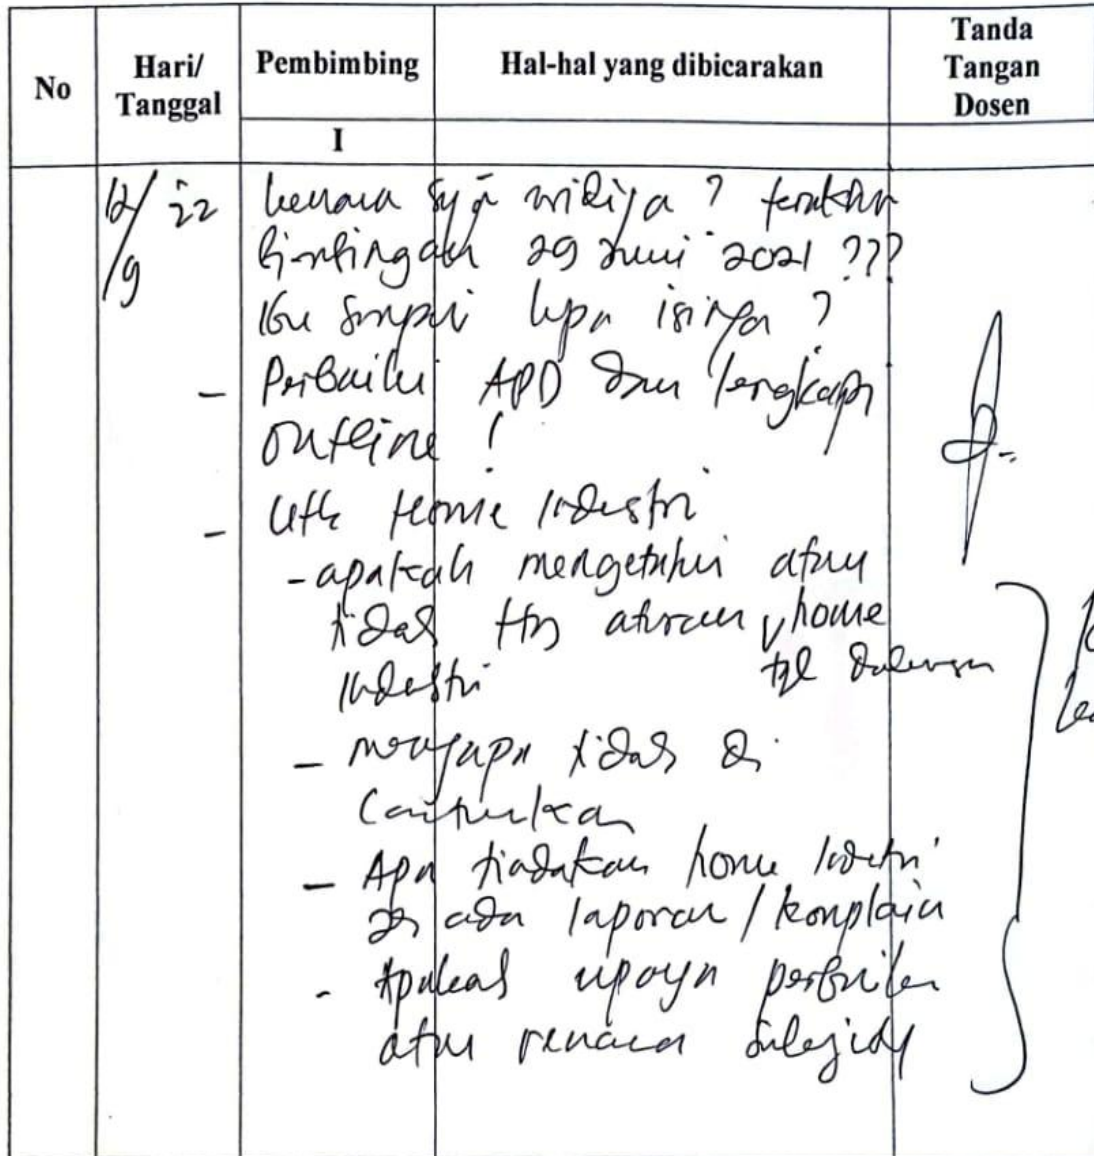 No
Hari/
Tanggal
Pembimbing
Hal-hal yang dibicarakan
Tanda
Tangan
Dosen
I
12/9 22
kemana ? terakhir
bimbingan 29 Juni 2021 ???
Ibu sampai lupa isinya ?
- Perbaiki APD dan lengkapi
outline !
- Utk Home Industri
- apakah mengetahui atau
tidak ttg aturan home
tgl
Industri
- mengapa tidak di
cantumkan
- Apa tindakan home industri
ada laporan / komplain
- Apakah upaya perbaikan
atau rencana